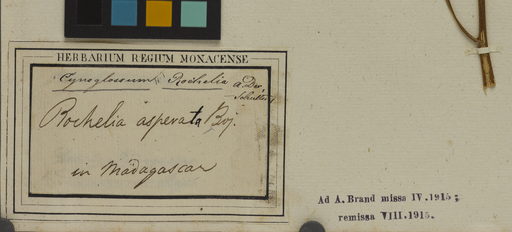 HERBARIUM REGIUM MONACENSE
Cynoglossum Rochelia
Rochelia asperata Boj.
in Madagascar
Ad A. Brand missa IV. 1915;
remissa VIII. 1915.